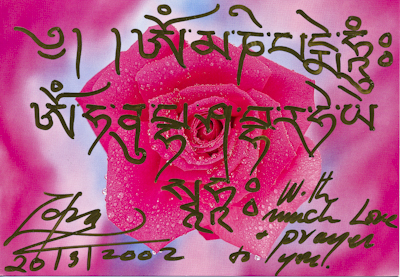 ༄། །ཨོཾ་མ་ཎི་པདྨེ་ཧཱུྃ༔
ཨོཾ་ཧ་ནུ་པྷ་ཤ་བྷ་ར་ཧེ་ཡེ་
སྭཱཧཱ༔
Zopa
20/3/2002
With
much Love
+ prayer
to you.